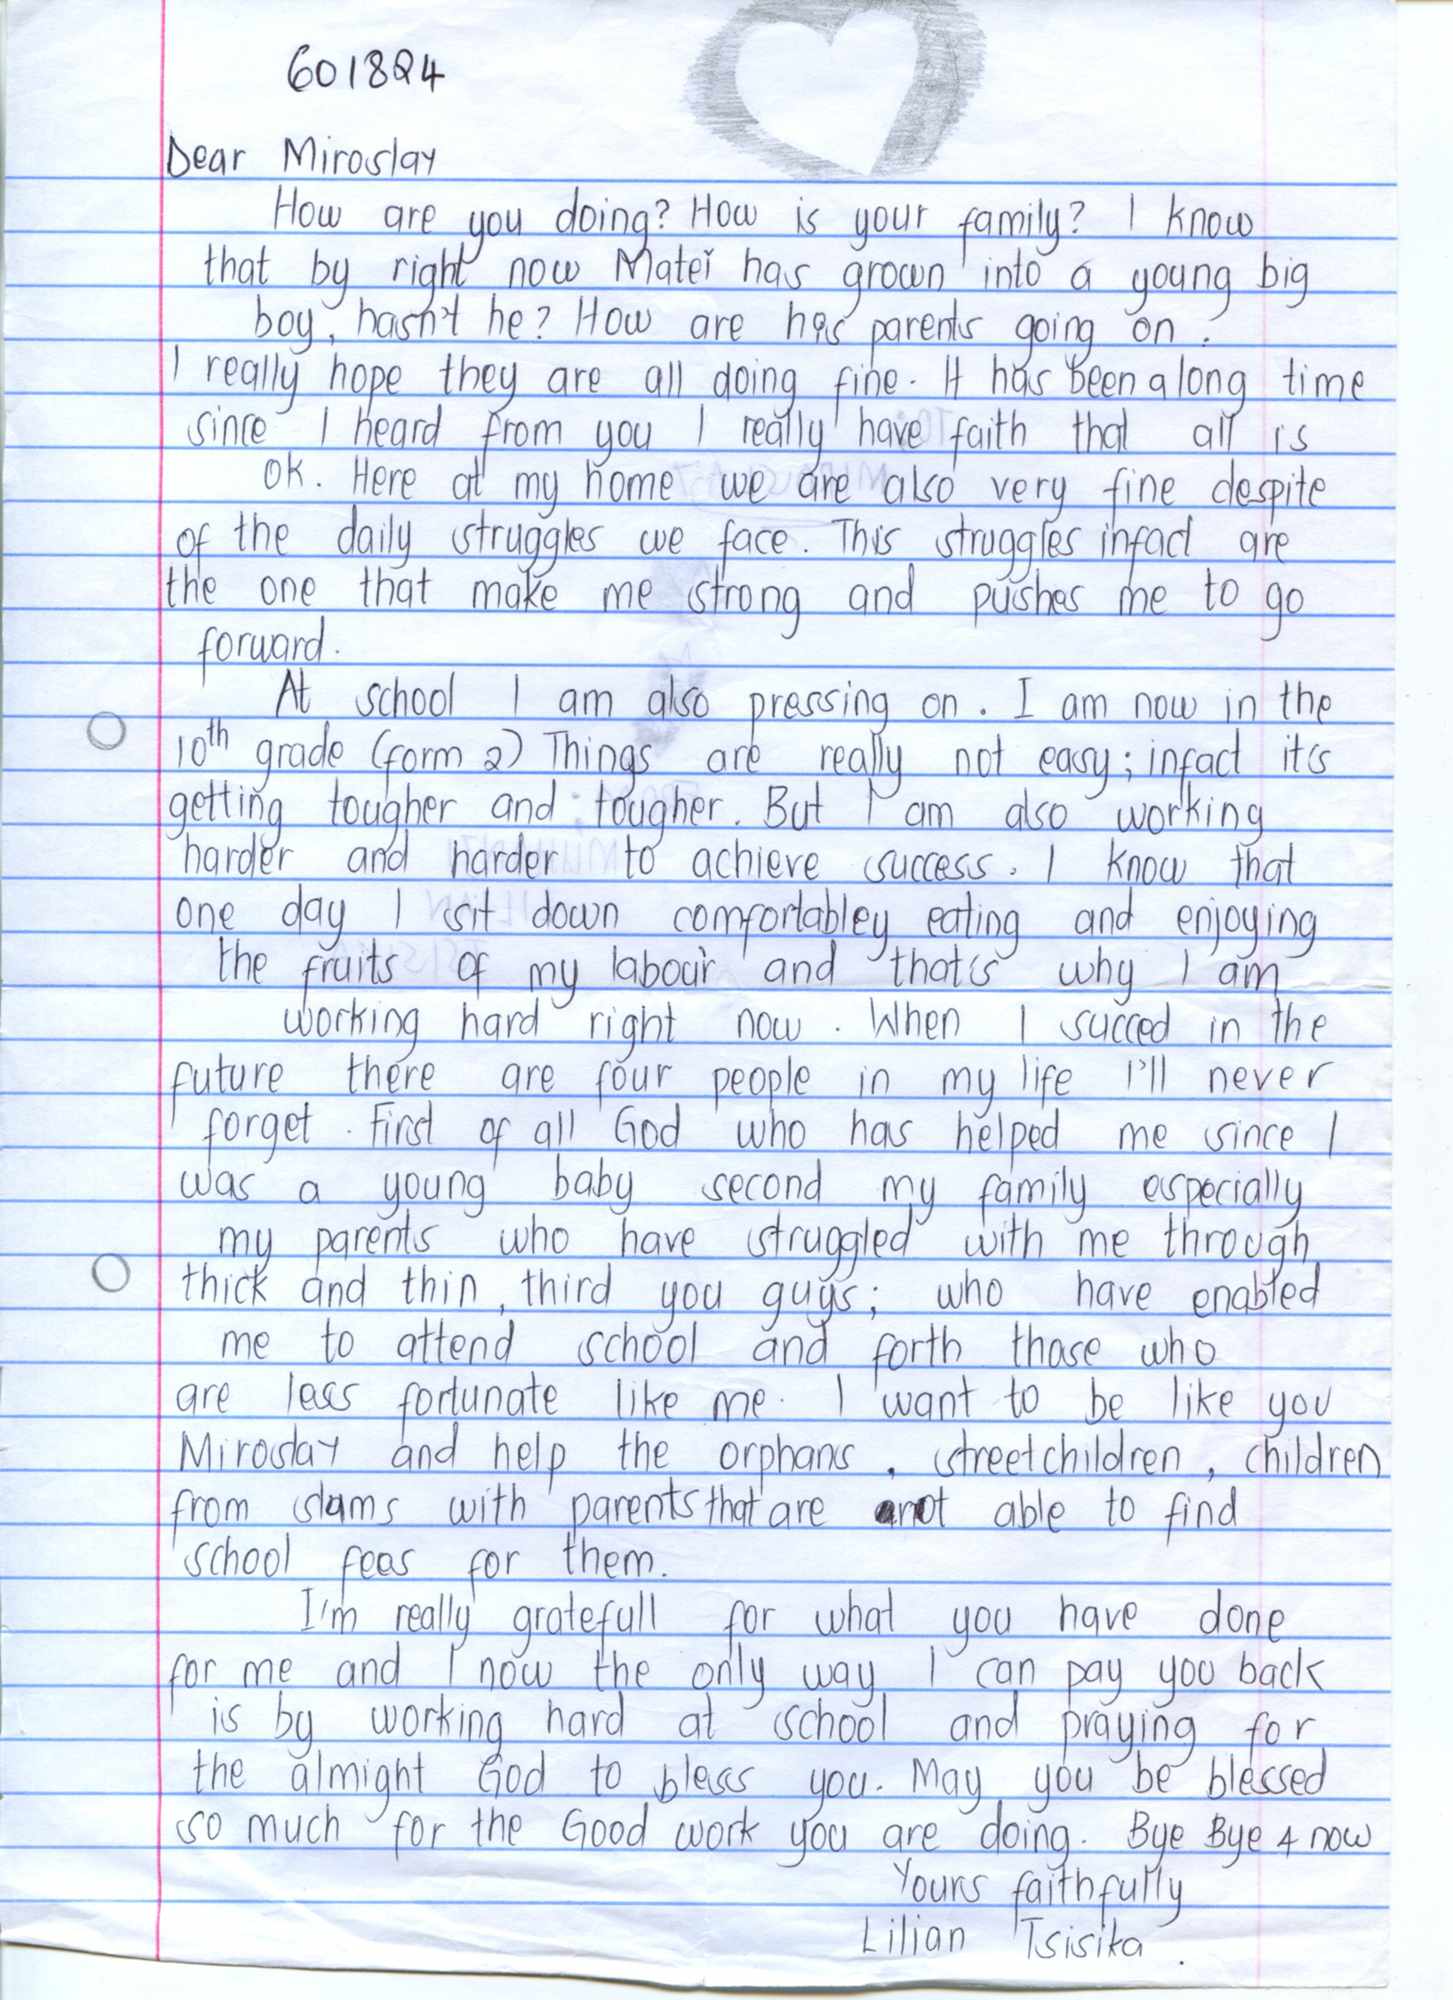 601824
Dear Miroslay
How are you doing? How is your family? I know
that by right now Matei has grown into a young big
boy, hasn't he? How are his parents going on.
I really hope they are all doing fine. It has been along time
since I heard from you I really have faith that all is
ok. Here at my home we are also very fine despite
of the daily struggles we face. This struggles infact are
the one that make me strong and pushes me to go
forward.
At school I am also pressing on. I am now in the
10th grade (form 2) Things are really not easy; infact it's
getting tougher and tougher. But I am also working
harder and harder to achieve success. I know that
one day I sit down comfortabley eating and enjoying
the fruits of my labour and that's why I am
working hard right now. When I succed in the
future there are four people in my life I'll never
forget. First of all God who has helped me since I
was a young baby second my family especially
my parents who have struggled with me through
thick and thin, third you guys; who have enabled
me to attend school and forth those who
are less fortunate like me. I want to be like you
Miroslay and help the orphans, streetchildren, children
from slams with parents that are not able to find
school fees for them.
I'm really gratefull for what you have done
for me and I now the only way I can pay you back
is by working hard at school and praying for
the almight God to bless you. May you be blessed
so much for the Good work you are doing. Bye Bye 4 now
Yours faithfully
Lilian Tsisika.